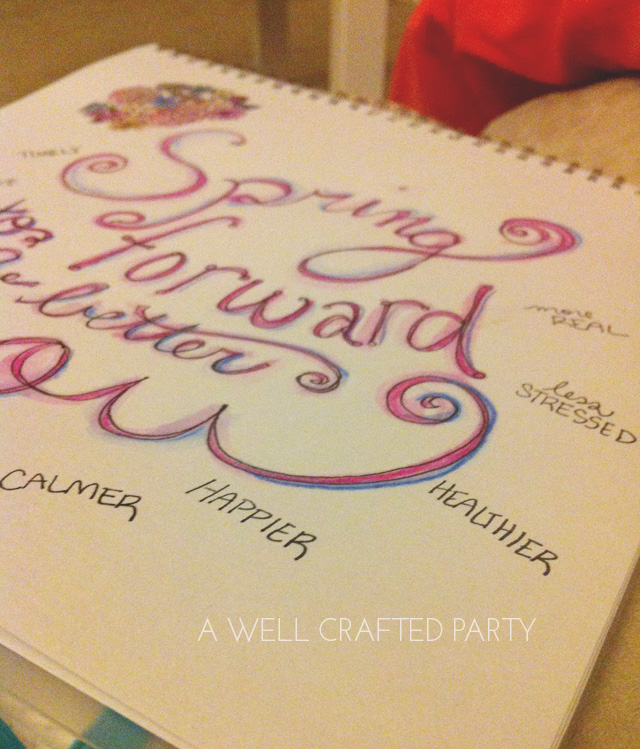 TIMELY
Spring
forward
better
more
REAL
less
STRESSED
CALMER
HAPPIER
HEALTHIER
A WELL CRAFTED PARTY